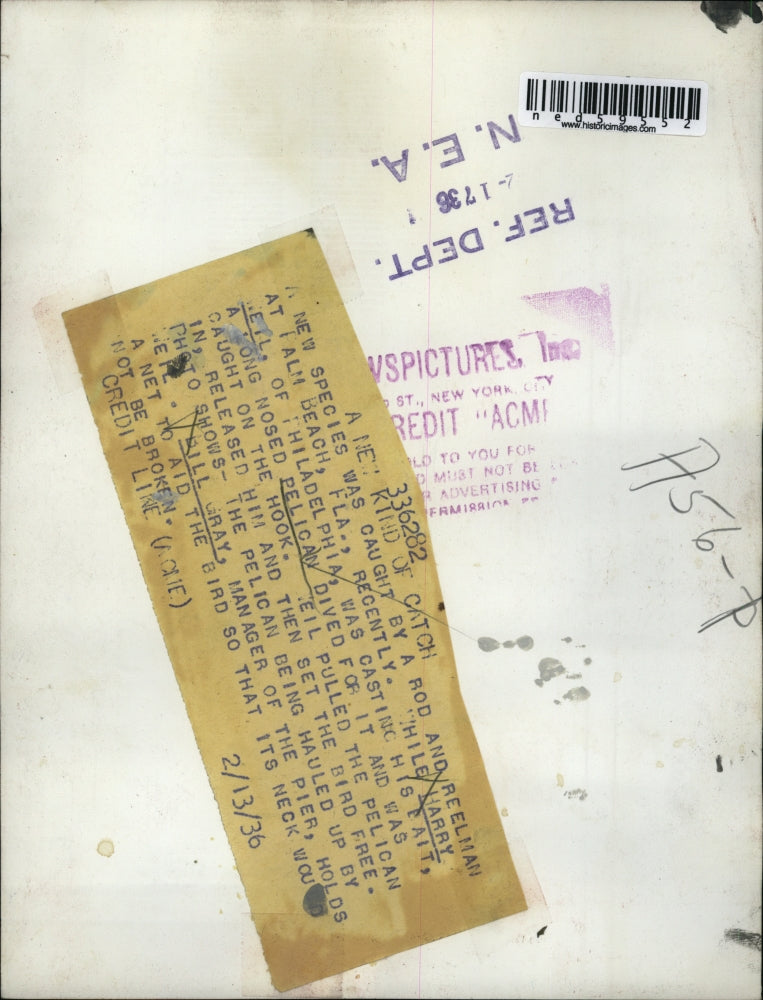 ned59552
www.historicimages.com
N.E.A.
1736
REF. DEPT.
NEWSPICTURES, Inc
ST., NEW YORK, CITY
CREDIT "ACME
TO YOU FOR
MUST NOT BE
ADVERTISING
PERMISSION
A56-P
336282
A NEW KIND OF CATCH
A NEW SPECIES WAS CAUGHT BY A ROD AND REELMAN
AT PALM BEACH, FLA., RECENTLY. WHILE HARRY
WEIL, OF PHILADELPHIA, WAS CASTING HIS BAIT,
A LONG NOSED PELICAN DIVED FOR IT AND WAS
CAUGHT ON THE HOOK. WEIL PULLED THE PELICAN
IN, RELEASED HIM AND THEN SET THE BIRD FREE.
PHOTO SHOWS- THE PELICAN BEING HAULED UP BY
WEIL. BILL GRAY, MANAGER OF THE PIER, HOLDS
A NET TO AID THE BIRD SO THAT ITS NECK WOULD
NOT BE BROKEN.
CREDIT LINE (ACME) 2/13/36